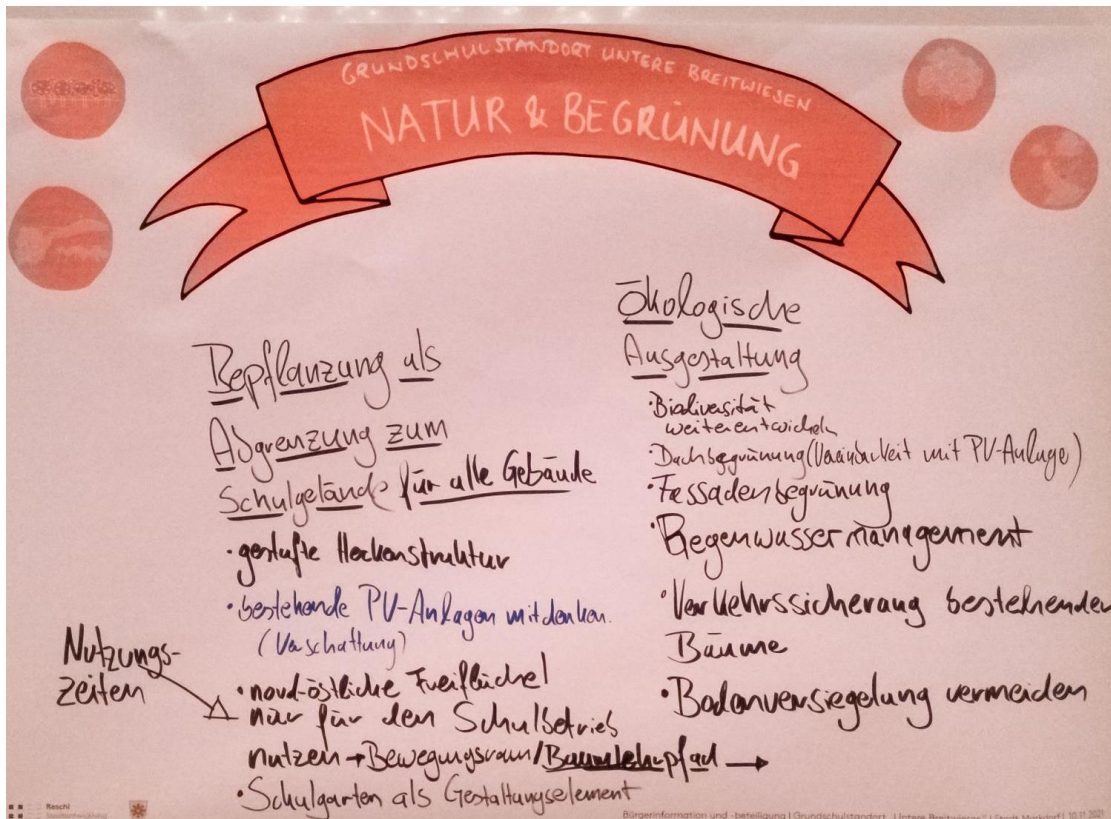 GRUNDSCHULSTANDORT UNTERE BREITWIESEN
NATUR & BEGRÜNUNG
Bepflanzung als
Abgrenzung zum
Schulgelände für alle Gebäude
· gestufte Heckenstruktur
· bestehende PV-Anlagen mitdenken.
(Verschattung)
Nutzungs-
zeiten
· nord-östliche Freifläche!
nur für den Schulbetrieb
nutzen → Bewegungsraum/Baumlehrpfad →
· Schulgarten als Gestaltungselement
Ökologische
Ausgestaltung
· Biodiversität
weiterentwickeln
· Dachbegrünung (Vereinbarkeit mit PV-Anlage)
· Fassadenbegrünung
· Regenwassermanagement
· Verkehrssicherung bestehender
Bäume
· Bodenversiegelung vermeiden
Reschl
Stadtentwicklung
Bürgerinformation und -beteiligung | Grundschulstandort „Untere Breitwiesen" | Stadt Markdorf | 10.11.2021